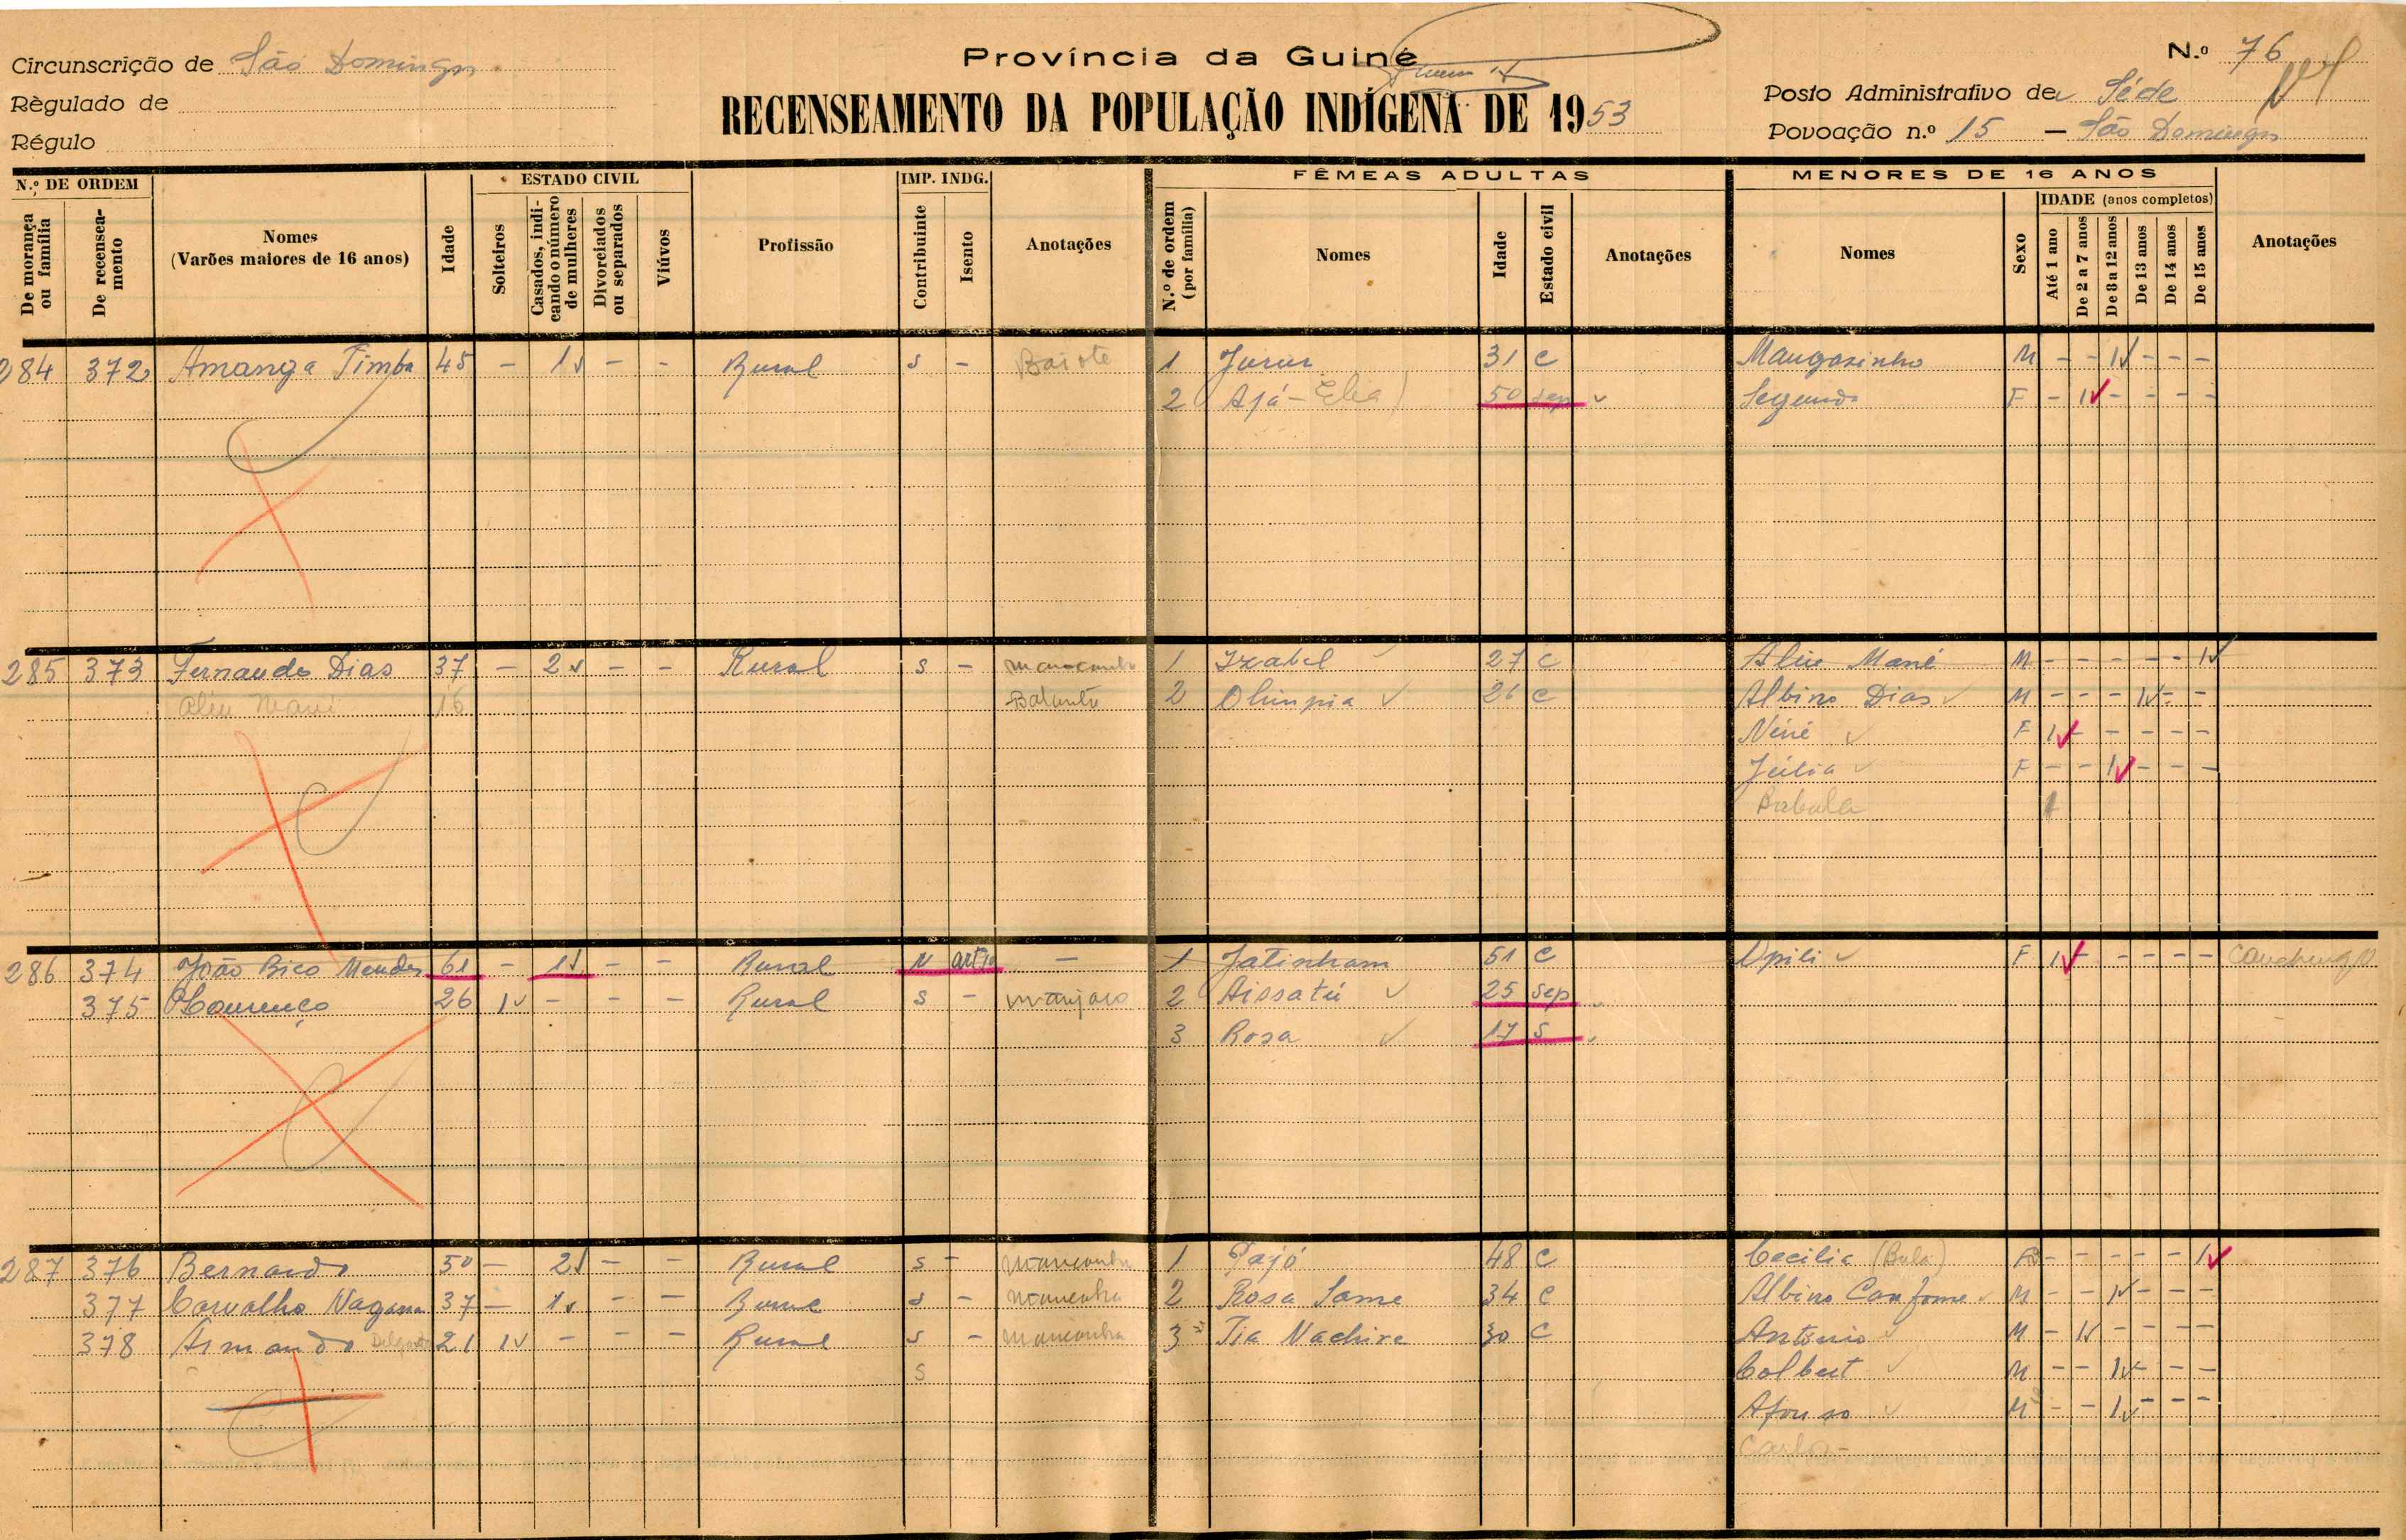 Província da Guiné
N.º 76
Circunscrição de São Domingos
Règulado de
Régulo
RECENSEAMENTO DA POPULAÇÃO INDÍGENA DE 1953
Posto Administrativo de Séde
Povoação n.º 15 — São Domingos
N.º DE ORDEM
De morança ou família
De recenseamento
Nomes
(Varões maiores de 16 anos)
Idade
ESTADO CIVIL
Solteiros
Casados, indicando o número de mulheres
Divorciados ou separados
Viúvos
Profissão
IMP. INDG.
Contribuinte
Isento
Anotações
FÊMEAS ADULTAS
N.º de ordem (por família)
Nomes
Idade
Estado civil
Anotações
MENORES DE 16 ANOS
Nomes
Sexo
IDADE (anos completos)
Até 1 ano
De 2 a 7 anos
De 8 a 12 anos
De 13 anos
De 14 anos
De 15 anos
Anotações
284 372 Amanga Timba 45 - 1 - - Rural s - Baiote 1 31 C Mangasinho M - - 1 - - -
2 Ajá - Elia) 50 sep Segunda F - 1 - - - -
285 373 Fernando Dias 37 - 2 - - Rural s - 1 Izabel 27 C Aliu Mané M - - - - - 1
Aliu Mané 16 2 Olímpia 26 C Albino Dias M - - - 1 - -
Néné F 1 - - - - -
Júlia F - - 1 - - -
286 374 João Bico Mendes 61 - 1 - - Rural N - 1 Jatinham 51 C Upili F 1 - - - -
375 Lourenço 26 1 - - - Rural s - manjaco 2 Aissatú 25 sep
3 Rosa 17 S
287 376 Bernardo 50 - 2 - - Rural s - 1 48 C Cecilia (Bula) - - - - - 1
377 Carvalho 37 - 1 - - Rural s - 2 Rosa Same 34 C Albino M - - 1 - - -
378 Armando 21 1 - - - Rural s - 3 Tia Nachire 30 C António M - 1 - - - -
S Colbert M - - 1 - - -
Afonso M - - 1 - - -
Carlos -